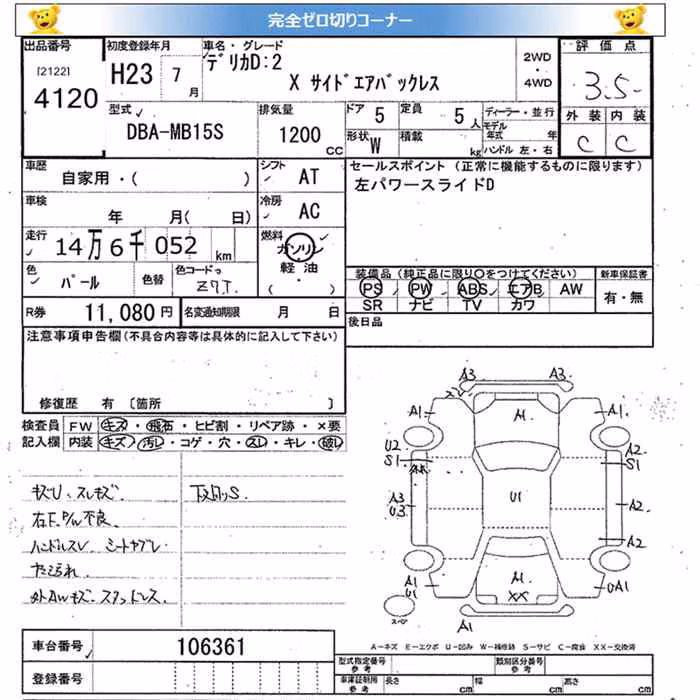 完全ゼロ切りコーナー
出品番号
[2122]
4120
初度登録年月
H23 7月
車名・グレード
デリカD:2
X サイドエアバックレス
2WD
・
4WD
評価点
3.5
外装 内装
C C
型式
DBA-MB15S
排気量
1200 cc
ドア 5
定員 5人
形状 W
積載 kg
ディーラー・並行
モデル年式 年
ハンドル 左・右
車歴
自家用・( )
シフト AT
車検
年 月( 日)
冷房 AC
走行
14万6千052 km
燃料
ガソリン
軽油
( )
色 パール
色替
色コードNo
Z7T
R券 11,080円
名変通知期限 月 日
セールスポイント (正常に機能するものに限ります)
左パワースライドD
装備品 (純正品に限り〇をつけてください)
PS PW ABS エアB AW
SR ナビ TV カワ
新車保証書
有・無
後日品
注意事項申告欄 (不具合内容等は具体的に記入して下さい)
修復歴 有 〔箇所 〕
検査員
記入欄
FW キズ・飛石・ヒビ割・リペア跡・×要
内装 キズ・汚れ・コゲ・穴・スレ・キレ・破レ
キズU、スレキズ
下廻りS.
右F P/W不良
ハンドルスレ シートヤブレ
外AWキズ・スタッドレス
A3 A3
A1 A1
U2
S1
A2
S1
A3
U3
A2
A2
U1
XX
A1
U1
UA1
A1
スペア
A-キズ E-エクボ U-凹み W-補修跡 S-サビ C-腐食 XX-交換済
車台番号 106361
登録番号
型式指定番号 参考
類別区分番号 参考
車庫証明用 参考
長さ cm 幅 cm 高さ cm